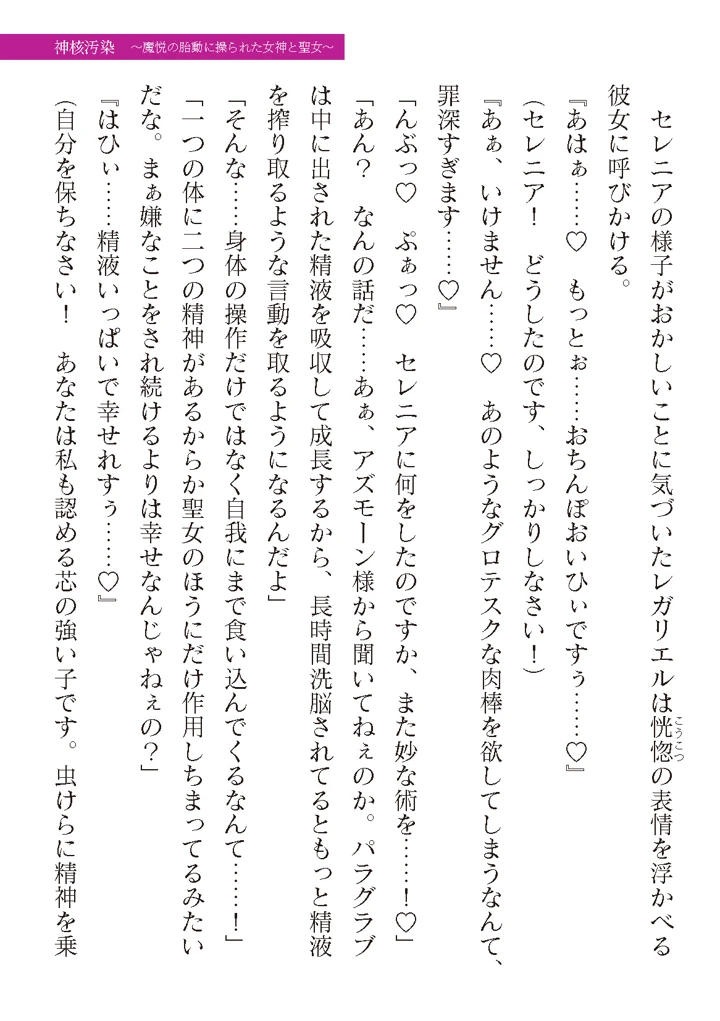 神核汚染 ～魔悦の胎動に操られた女神と聖女～
　セレニアの様子がおかしいことに気づいたレガリエルは恍惚の表情を浮かべる
こうこつ
彼女に呼びかける。
『あはぁ……♡　もっとぉ……おちんぽおいひぃですぅ……♡』
（セレニア！　どうしたのです、しっかりしなさい！）
『あぁ、いけません……♡　あのようなグロテスクな肉棒を欲してしまうなんて、
罪深すぎます……♡』
「んぶっ♡　ぷぁっ♡　セレニアに何をしたのですか、また妙な術を……！♡」
「あん？　なんの話だ……あぁ、アズモーン様から聞いてねぇのか。パラグラブ
は中に出された精液を吸収して成長するから、長時間洗脳されてるともっと精液
を搾り取るような言動を取るようになるんだよ」
「そんな……身体の操作だけではなく自我にまで食い込んでくるなんて……！」
「一つの体に二つの精神があるからか聖女のほうにだけ作用しちまってるみたい
だな。まぁ嫌なことをされ続けるよりは幸せなんじゃねぇの？」
『はひぃ……精液いっぱいで幸せれすぅ……♡』
（自分を保ちなさい！　あなたは私も認める芯の強い子です。虫けらに精神を乗